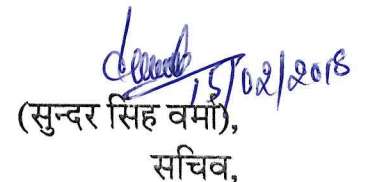 15/02/2018
(सुन्दर सिंह वर्मा),
सचिव,